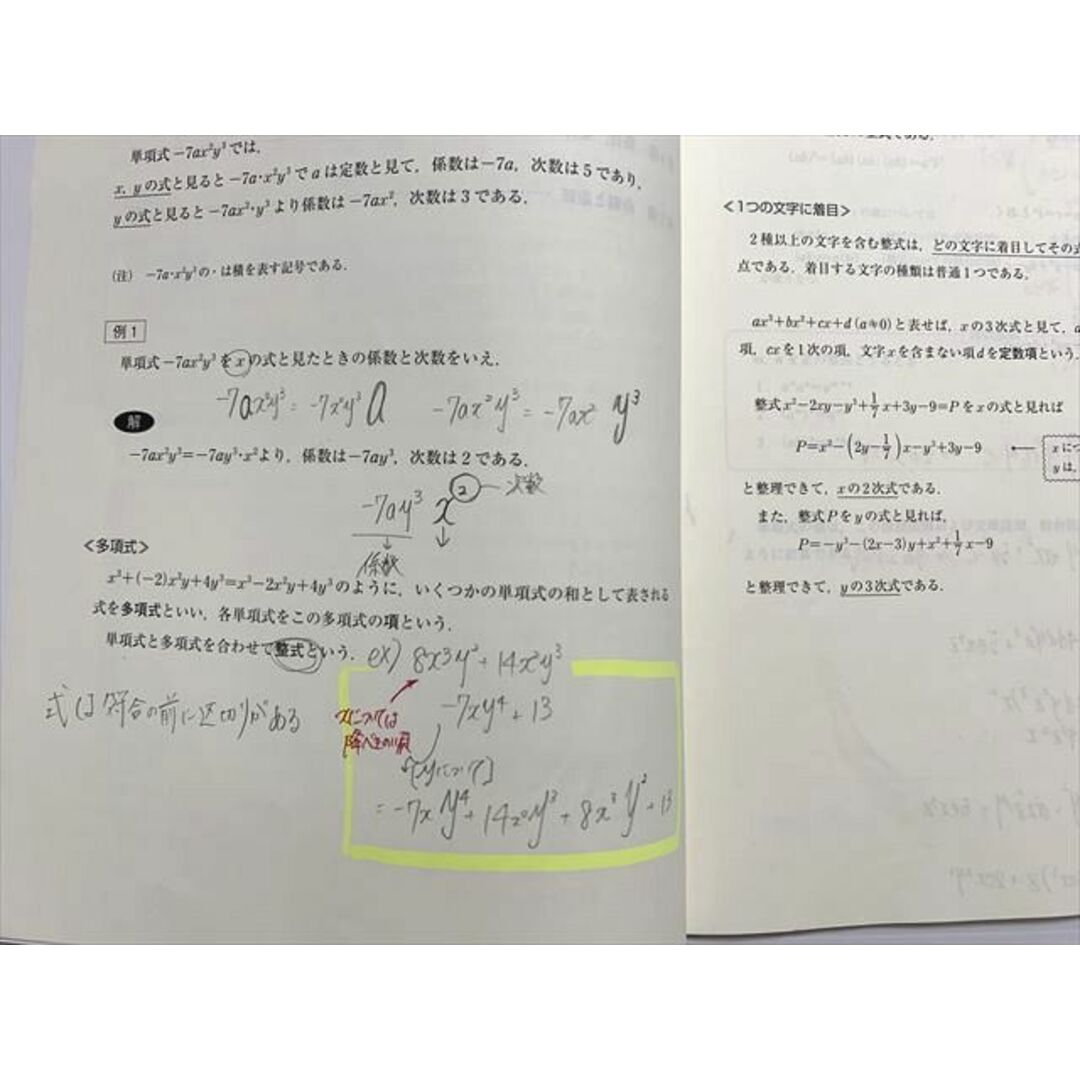 単項式−7ax²y³では,
x, yの式と見ると−7a·x²y³でaは定数と見て, 係数は−7a, 次数は5であり,
yの式と見ると−7ax²·y³より係数は−7ax², 次数は3である.
(注) −7a·x²y³の·は積を表す記号である.
例1
単項式−7ax²y³をxの式と見たときの係数と次数をいえ.
−7ax²y³ = −7x²y³ a −7ax²y³ = −7ax² y³
解
−7ax²y³=−7ay³·x²より, 係数は−7ay³, 次数は2である.
−7ay³ x² 次数
係数
<多項式>
x³+(−2)x²y+4y³=x³−2x²y+4y³のように, いくつかの単項式の和として表される
式を多項式といい, 各単項式をこの多項式の項という.
単項式と多項式を合わせて整式という.
ex) 8x³y² + 14x²y³
−7xy⁴ + 13
xについては
降べきの順
[yについて]
= −7x y⁴ + 14x² y³ + 8x³ y² + 13
式は符合の前に区切りがある
<1つの文字に着目>
2種以上の文字を含む整式は, どの文字に着目してその式
点である. 着目する文字の種類は普通1つである.
ax³+bx²+cx+d (a≠0) と表せば, xの3次式と見て, a
項, cxを1次の項, 文字xを含まない項dを定数項という.
整式x²−2xy−y³+1/7x+3y−9=Pをxの式と見れば
P=x²−(2y−1/7)x−y³+3y−9 ←
xにつ
yは,
と整理できて, xの2次式である.
また, 整式Pをyの式と見れば,
P=−y³−(2x−3)y+x²+1/7x−9
と整理できて, yの3次式である.